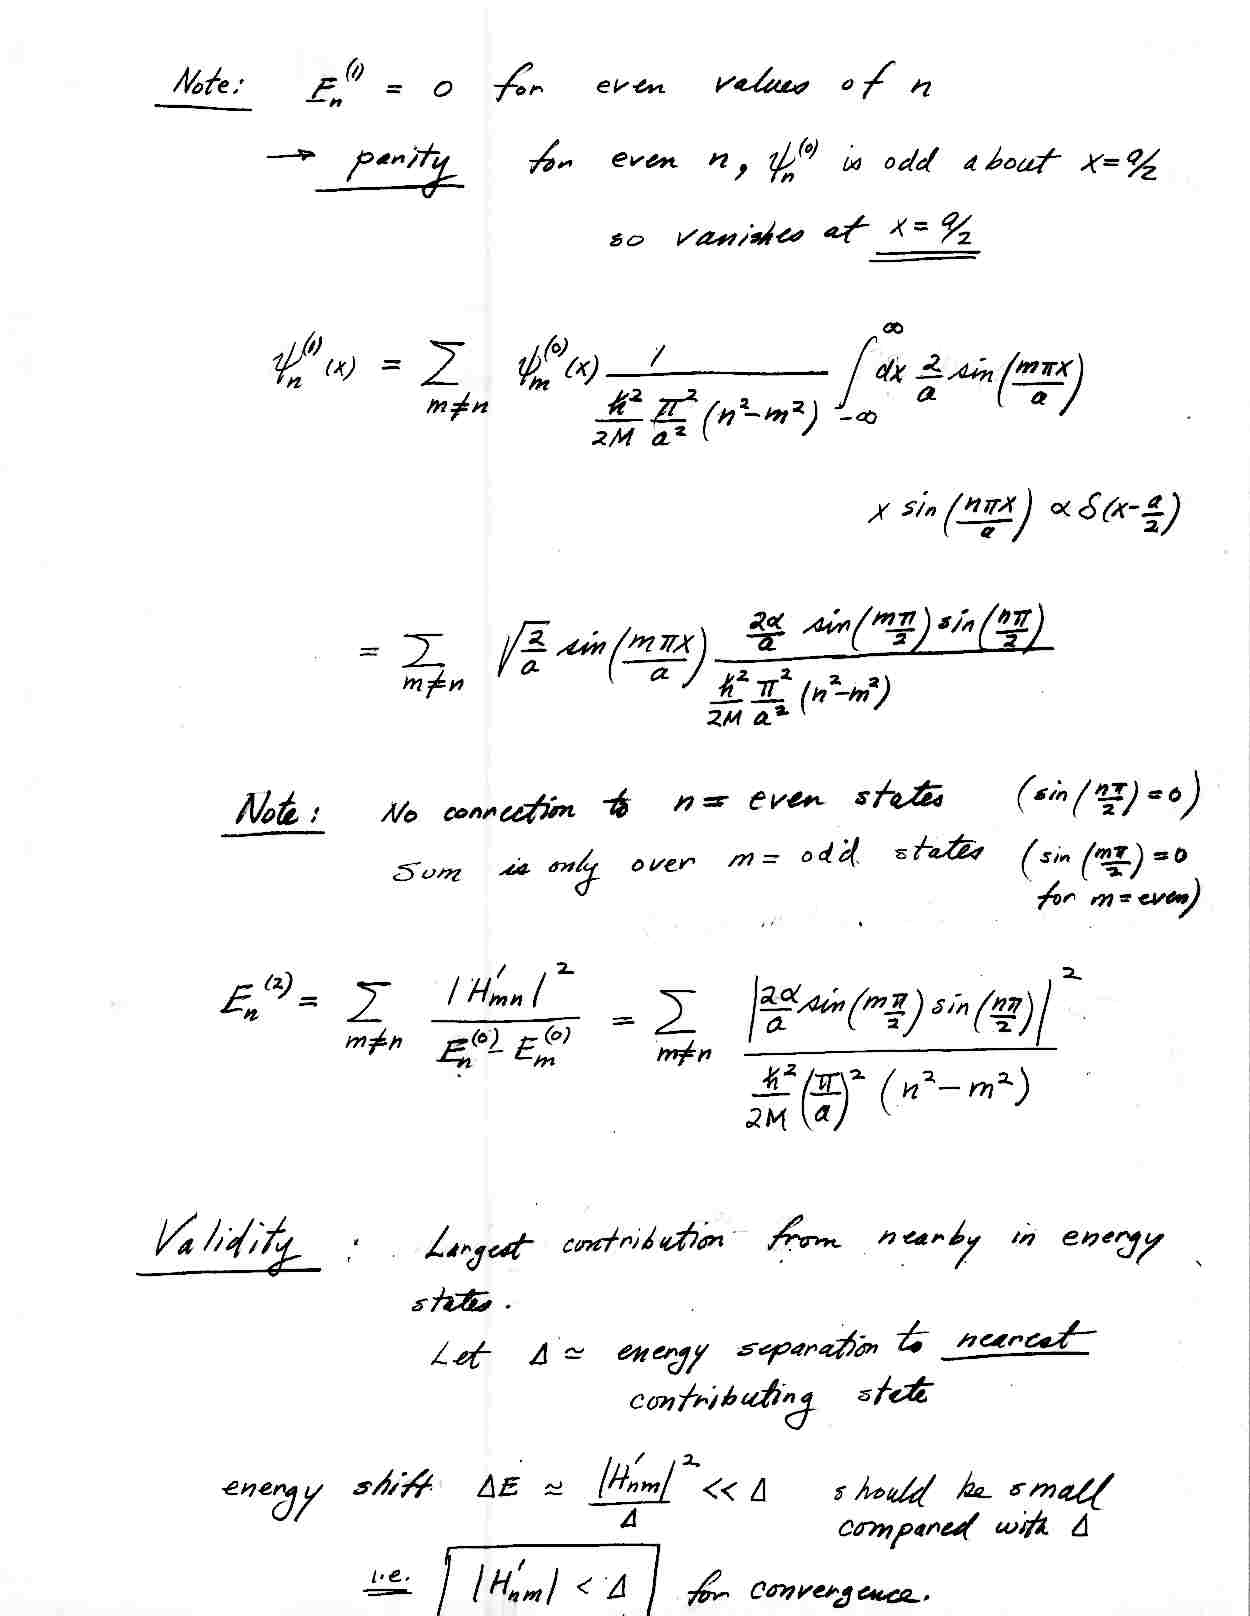 Note: Eₙ⁽¹⁾ = 0 for even values of n
→ parity for even n, ψₙ⁽⁰⁾ is odd about x = a/2
so vanishes at x = a/2
ψₙ⁽¹⁾(x) = ∑_{m≠n} ψₘ⁽⁰⁾(x) 1/(ħ²/2M π²/a² (n²−m²)) ∫_{−∞}^{∞} dx 2/a sin(mπx/a)
x sin(nπx/a) α δ(x−a/2)
= ∑_{m≠n} √(2/a) sin(mπx/a) (2α/a sin(mπ/2) sin(nπ/2))/(ħ²/2M π²/a² (n²−m²))
Note: No connection to n = even states (sin(nπ/2) = 0)
Sum is only over m = odd states (sin(mπ/2) = 0
for m = even)
Eₙ⁽²⁾ = ∑_{m≠n} |H′ₘₙ|²/(Eₙ⁽⁰⁾ − Eₘ⁽⁰⁾) = ∑_{m≠n} |2α/a sin(mπ/2) sin(nπ/2)|²/(ħ²/2M (π/a)² (n²−m²))
Validity : Largest contribution from nearby in energy
states.
Let Δ ≃ energy separation to nearest
contributing state
energy shift ΔE ≈ |H′ₙₘ|²/Δ << Δ should be small
compared with Δ
i.e. |H′ₙₘ| < Δ for convergence.